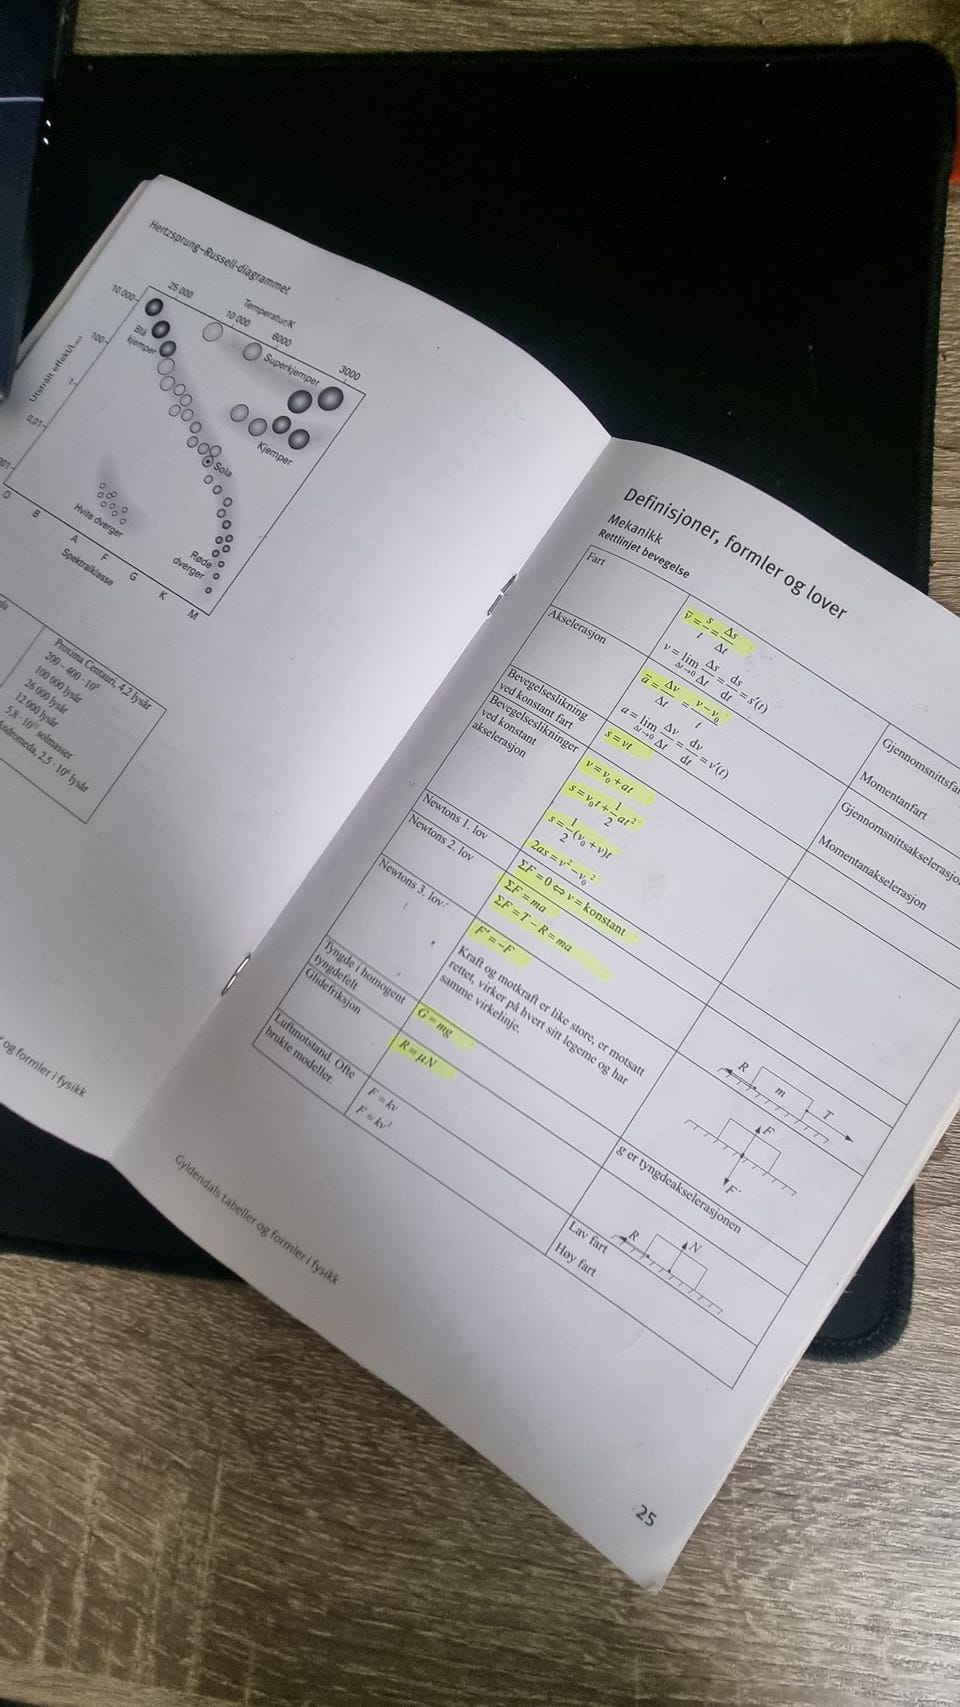 Hertzsprung–Russell-diagrammet
Temperatur/K
25 000
10 000
6000
3000
10 000
100
1
0,01
Utstrålt effekt/L
Blå
kjemper
Superkjemper
Kjemper
Sola
Hvite dverger
Røde
dverger
O B A F G K M
Spektralklasse
Proxima Centauri, 4,2 lysår
200 – 400 · 10⁹
100 000 lysår
26 000 lysår
12 000 lysår
5,8 · 10¹¹ solmasser
Andromeda, 2,5 · 10⁶ lysår
og formler i fysikk
Definisjoner, formler og lover
Mekanikk
Rettlinjet bevegelse
Fart
v̄ = s/t = Δs/Δt
Gjennomsnittsfar
v = lim Δt→0 Δs/Δt = ds/dt = s'(t)
Momentanfart
Akselerasjon
ā = Δv/Δt = v – v₀/t
Gjennomsnittsakselerasjo
a = lim Δt→0 Δv/Δt = dv/dt = v'(t)
Momentanakselerasjon
Bevegelseslikning
ved konstant fart
s = vt
Bevegelseslikninger
ved konstant
akselerasjon
v = v₀ + at
s = v₀t + 1/2 at²
s = 1/2 (v₀ + v)t
2as = v² – v₀²
Newtons 1. lov
ΣF = 0 ⇔ v = konstant
Newtons 2. lov
ΣF = ma
ΣF = T – R = ma
R m T
Newtons 3. lov
F* = –F
Kraft og motkraft er like store, er motsatt
rettet, virker på hvert sitt legeme og har
samme virkelinje.
F
F*
Tyngde i homogent
tyngdefelt
G = mg
g er tyngdeakselerasjonen
Glidefriksjon
R = μN
R N
Luftmotstand. Ofte
brukte modeller.
F = kv
Lav fart
F = kv²
Høy fart
Gyldendals tabeller og formler i fysikk
25